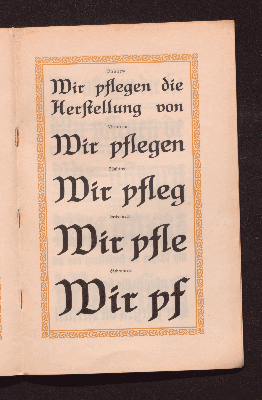 Wir pflegen die
Herstellung von
Wir pflegen
Wir pfleg
Wir pfle
Wir pf